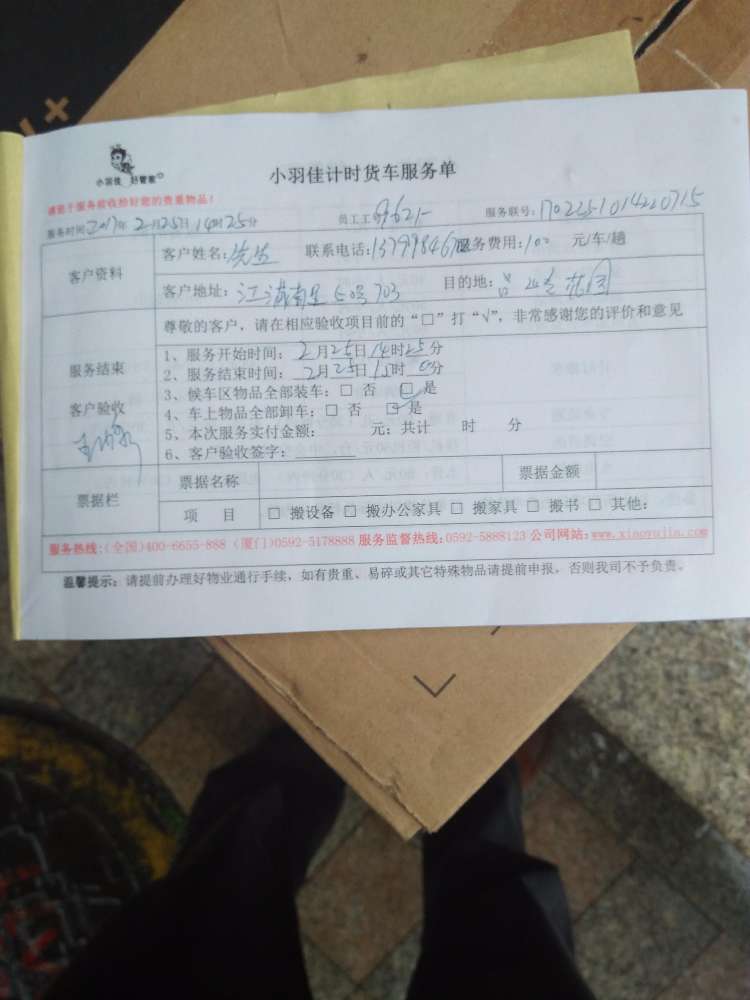 小羽佳 好管家
小羽佳计时货车服务单
请您于服务前收拾好您的贵重物品！
服务时间2017年2月25日14时25分 员工工 服务联号:
客户资料
客户姓名:先生 联系电话: 服务费用:100 元/车/趟
客户地址: 江 南里 50号703 目的地: 花园
服务结束
客户验收
尊敬的客户，请在相应验收项目前的“□”打“√”，非常感谢您的评价和意见
1、服务开始时间：2月25日14时25分
2、服务结束时间：2月25日15时 分
3、候车区物品全部装车：□ 否 □ 是
4、车上物品全部卸车：□ 否 □ 是
5、本次服务实付金额： 元：共计 时 分
6、客户验收签字：
票据栏
票据名称 票据金额
项 目 □ 搬设备 □ 搬办公家具 □ 搬家具 □ 搬书 □ 其他：
服务热线:(全国)400-6655-888 (厦门)0592-5178888 服务监督热线:0592-5888123 公司网站:www.xiaoyujia.com
温馨提示：请提前办理好物业通行手续，如有贵重、易碎或其它特殊物品请提前申报，否则我司不予负责。